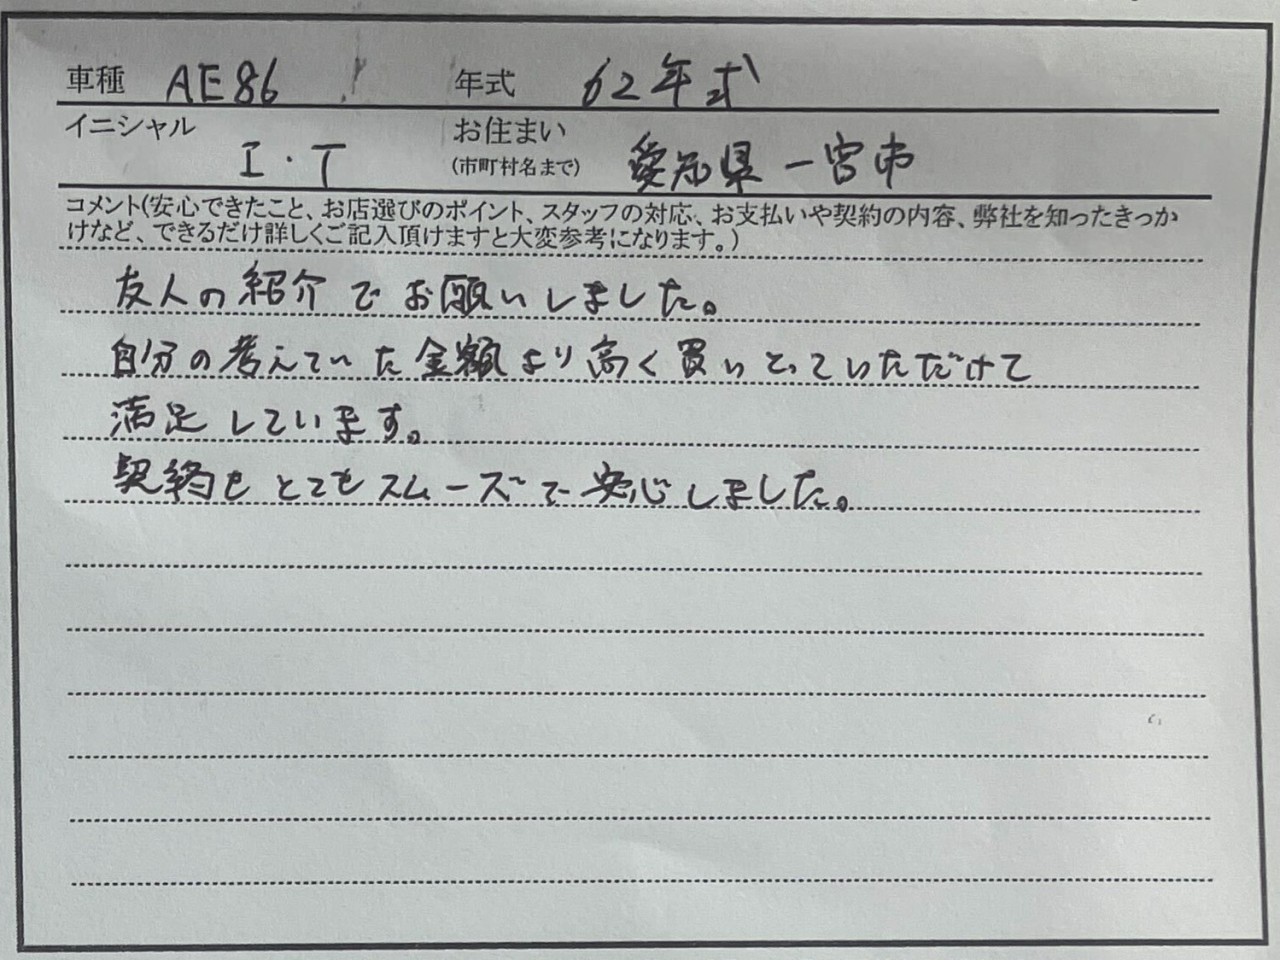 車種 AE86 年式 62年式
イニシャル I・T お住まい(市町村名まで) 愛知県一宮市
コメント(安心できたこと、お店選びのポイント、スタッフの対応、お支払いや契約の内容、弊社を知ったきっか
けなど、できるだけ詳しくご記入頂けますと大変参考になります。)
友人の紹介でお願いしました。
自分の考えていた金額より高く買いとっていただけて
満足しています。
契約もとてもスムーズで安心しました。